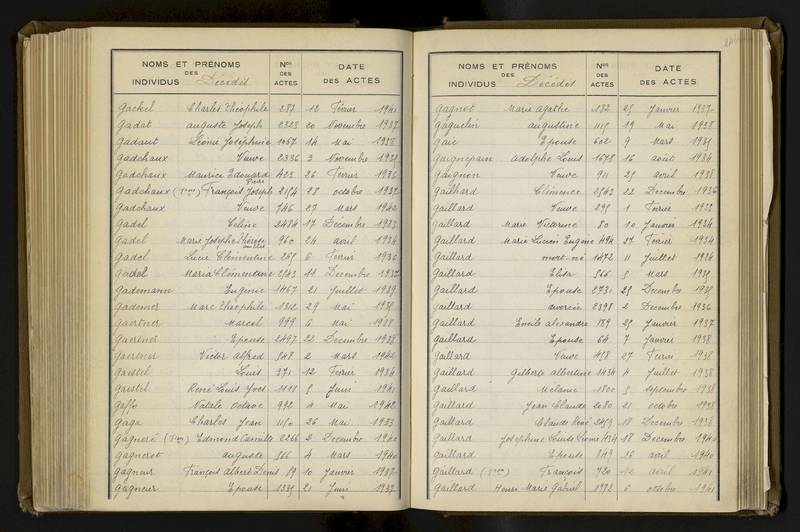 NOMS ET PRÉNOMS DES INDIVIDUS Décédés Nos DES ACTES DATE DES ACTES
Gackel Charles Théophile 283 12 Février 1941
Gadat Auguste Joseph 2323 20 Novembre 1937
Gadaut Léonie Joséphine 1057 14 Mai 1938
Gadchaux Veuve 2336 3 Novembre
Gadchaux Maurice Edouard 423 26 Février 1936
Gadchaux François Joseph 2154 28 octobre
Gadchaux Veuve 746 27 Mars 1942
Gadel Céline 2484 17 Décembre 1933
Gadel Marie Josèphe 960 24 avril 1934
Gadel Lucie Clémentine Février 1936
Gadel Maria Clémentine Décembre 1937
Gademann Eugénie 1467 21 Juillet 1939
Gademer Marc Théophile 1312 29 Mai
Gaertner Marcel 999 6 Mai 1938
Gaertner Epouse 2497 22 Décembre 1938
Gaertner Victor Alfred 548 2 Mars 1942
Gaestel Louis 371 12 Février 1934
Gaestel René Louis Yves 8 Juin 1941
Gaffo Natale Octave 992 4 Mai 1942
Gaga Charles Jean 1180 26 Mai 1933
Gagneré Edmond Camille 2266 2 Décembre 1940
Gagnerot auguste 866 4 Mars 1940
Gagneur François Albert Denis 19 10 Janvier
Gagneur Epouse 21 Juin 1932
NOMS ET PRÉNOMS DES INDIVIDUS Décédés Nos DES ACTES DATE DES ACTES
Gagnot Marie Agathe 182 Janvier 1937
Gaguelin augustine 19 Mai 1938
Gaie Epouse 602 9 Mars
Gaignepain Adolphe Louis 1678 16 août 1934
Gaignon Veuve 911 25 avril 1938
Gailhard Clémence 2542 22 Décembre 1936
Gaillard Veuve 1 Février
Gaillard Marie Victorine 80 10 Janvier 1934
Gaillard Marie Lucien Eugène 27 Février 1934
Gaillard mort-né 1472 11 Juillet 1934
Gaillard Elisa 566 8 Mars
Gaillard Epouse 2731 28 Décembre
Gaillard divorcée 2398 2 Décembre 1936
Gaillard Emile Alexandre 189 Janvier 1937
Gaillard Epouse 64 7 Janvier 1938
Gaillard Veuve 27 Février 1938
Gaillard Gilberte Albertine 1434 4 Juillet 1938
Gaillard Mélanie 1800 8 Septembre 1938
Gaillard Jean Claude 2080 21 octobre 1938
Gaillard Claude René 2453 18 Décembre 1938
Gaillard Joséphine Louise 18 Décembre 1940
Gaillard Epouse 849 16 avril 1940
Gaillard François 720 12 avril 1941
Gaillard Henri Marie Gabriel 1772 6 octobre 1941